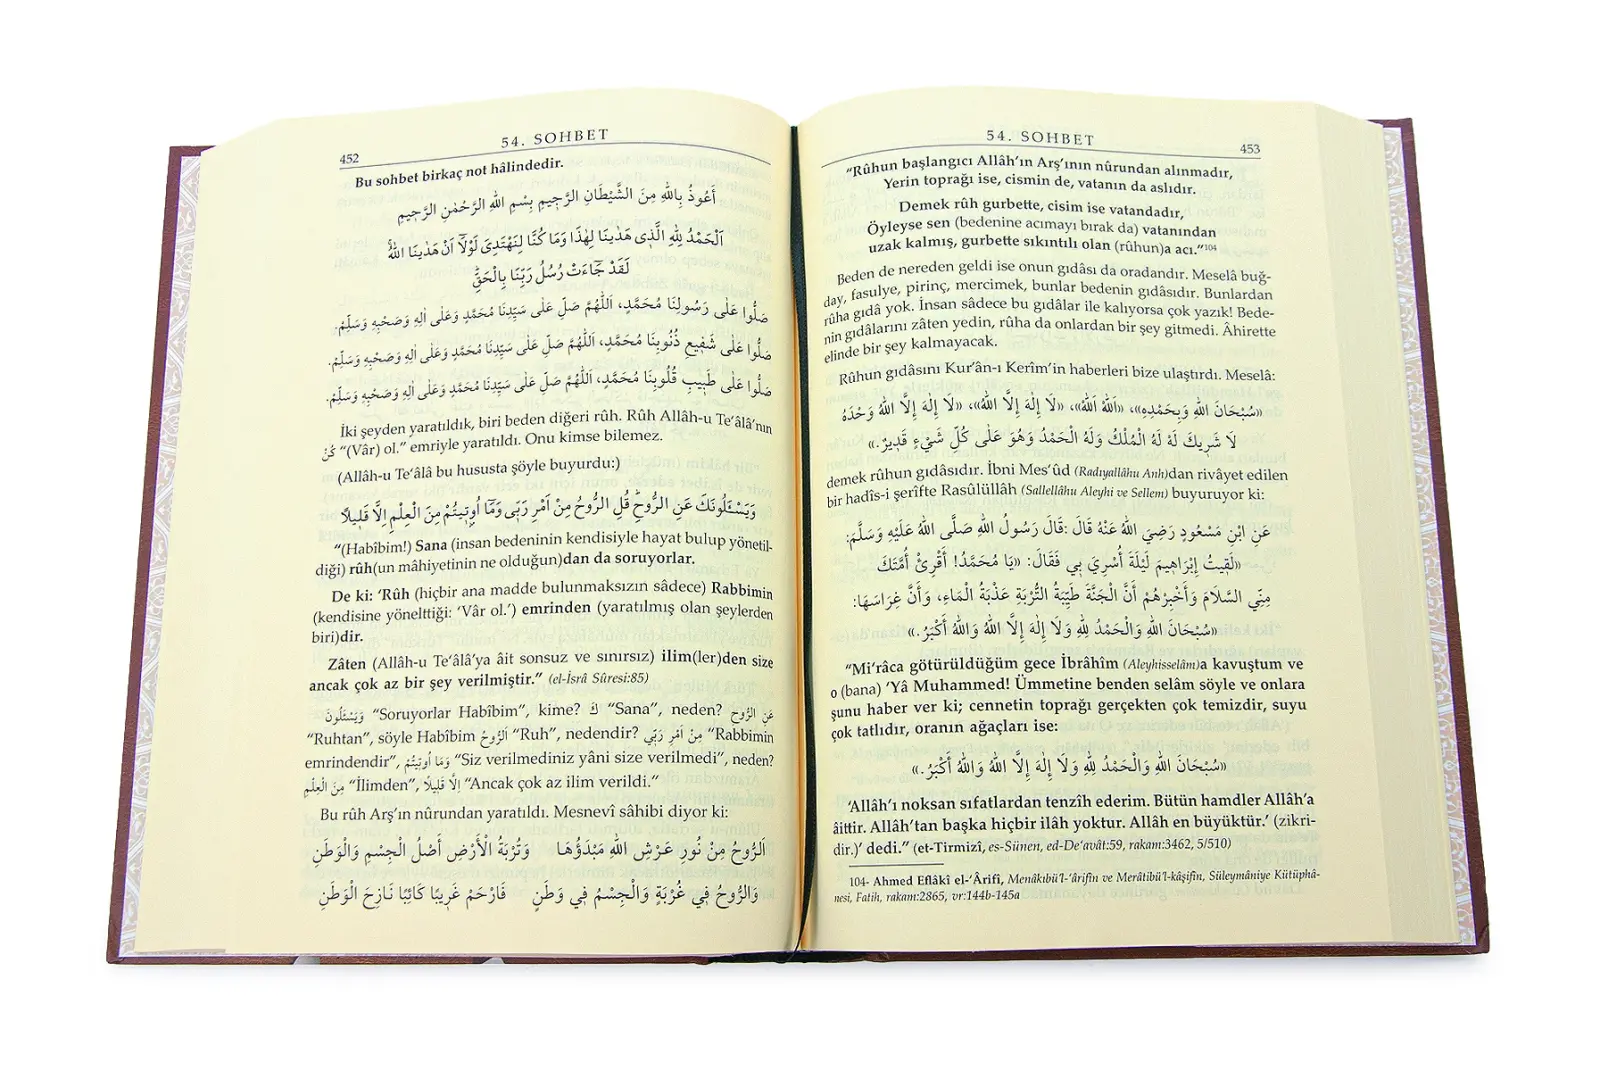 54. SOHBET
452
Bu sohbet birkaç not hâlindedir.
أَعُوذُ بِاللهِ مِنَ الشَّيْطَانِ الرَّجِيمِ بِسْمِ اللهِ الرَّحْمٰنِ الرَّحِيمِ
اَلْحَمْدُ لِلّٰهِ الَّذِي هَدٰينَا لِهٰذَا وَمَا كُنَّا لِنَهْتَدِيَ لَوْلَٓا اَنْ هَدٰينَا اللهُ
لَقَدْ جَٓاءَتْ رُسُلُ رَبِّنَا بِالْحَقِّ
صَلُّوا عَلٰى رَسُولِنَا مُحَمَّدٍ، اَللّٰهُمَّ صَلِّ عَلٰى سَيِّدِنَا مُحَمَّدٍ وَعَلٰى اٰلِهِ وَصَحْبِهِ وَسَلِّمْ.
صَلُّوا عَلٰى شَفِيعِ ذُنُوبِنَا مُحَمَّدٍ، اَللّٰهُمَّ صَلِّ عَلٰى سَيِّدِنَا مُحَمَّدٍ وَعَلٰى اٰلِهِ وَصَحْبِهِ وَسَلِّمْ.
صَلُّوا عَلٰى طَبِيبِ قُلُوبِنَا مُحَمَّدٍ، اَللّٰهُمَّ صَلِّ عَلٰى سَيِّدِنَا مُحَمَّدٍ وَعَلٰى اٰلِهِ وَصَحْبِهِ وَسَلِّمْ.
İki şeyden yaratıldık, biri beden diğeri rûh. Rûh Allâh-u Te‘âlâ’nın
كُنْ “(Vâr) ol.” emriyle yaratıldı. Onu kimse bilemez.
(Allâh-u Te‘âlâ bu hususta şöyle buyurdu:)
وَيَسْـَٔلُونَكَ عَنِ الرُّوحِ قُلِ الرُّوحُ مِنْ اَمْرِ رَبِّي وَمَٓا اُو۫تِيتُمْ مِنَ الْعِلْمِ اِلَّا قَلِيلًا
“(Habîbim!) Sana (insan bedeninin kendisiyle hayat bulup yönetil-
diği) rûh(un mâhiyetinin ne olduğun)dan da soruyorlar.
De ki: ‘Rûh (hiçbir ana madde bulunmaksızın sâdece) Rabbimin
(kendisine yönelttiği: ‘Vâr ol.’) emrinden (yaratılmış olan şeylerden
biri)dir.
Zâten (Allâh-u Te‘âlâ’ya âit sonsuz ve sınırsız) ilim(ler)den size
ancak çok az bir şey verilmiştir.” (el-İsrâ Sûresi:85)
وَيَسْئَلُونَ “Soruyorlar Habîbim”, kime? كَ “Sana”, neden? عَنِ الرُّوحِ
“Ruhtan”, söyle Habîbim الرُّوحُ “Ruh”, nedendir? مِنْ اَمْرِ رَبِّي “Rabbimin
emrindendir”, وَمَا اُوتِيتُمْ “Siz verilmediniz yâni size verilmedi”, neden?
مِنَ الْعِلْمِ “İlimden”, اِلَّا قَلِيلًا “Ancak çok az ilim verildi.”
Bu rûh Arş’ın nûrundan yaratıldı. Mesnevî sâhibi diyor ki:
اَلرُّوحُ مِنْ نُورِ عَرْشِ اللهِ مَبْدَؤُهَا وَتُرْبَةُ الْأَرْضِ أَصْلُ الْجِسْمِ وَالْوَطَنِ
وَالرُّوحُ فِي غُرْبَةٍ وَالْجِسْمُ فِي وَطَنٍ فَارْحَمْ غَرِيبًا كَئِيبًا نَازِحَ الْوَطَنِ
54. SOHBET
453
“Rûhun başlangıcı Allâh’ın Arş’ının nûrundan alınmadır,
Yerin toprağı ise, cismin de, vatanın da aslıdır.
Demek rûh gurbette, cisim ise vatandadır,
Öyleyse sen (bedenine acımayı bırak da) vatanından
uzak kalmış, gurbette sıkıntılı olan (rûhun)a acı.”104
Beden de nereden geldi ise onun gıdâsı da oradandır. Meselâ buğ-
day, fasulye, pirinç, mercimek, bunlar bedenin gıdâsıdır. Bunlardan
rûha gıdâ yok. İnsan sâdece bu gıdâlar ile kalıyorsa çok yazık! Bede-
nin gıdâlarını zâten yedin, rûha da onlardan bir şey gitmedi. Âhirette
elinde bir şey kalmayacak.
Rûhun gıdâsını Kur’ân-ı Kerîm’in haberleri bize ulaştırdı. Meselâ:
«سُبْحَانَ اللهِ وَبِحَمْدِهِ»، «اَللهُ اَللهُ»، «لَا إِلٰهَ إِلَّا اللهُ»، «لَا إِلٰهَ إِلَّا اللهُ وَحْدَهُ
لَا شَرِيكَ لَهُ لَهُ الْمُلْكُ وَلَهُ الْحَمْدُ وَهُوَ عَلٰى كُلِّ شَيْءٍ قَدِيرٌ.»
demek rûhun gıdâsıdır. İbni Mes‘ûd (Radıyallâhu Anh)dan rivâyet edilen
bir hadîs-i şerîfte Rasûlüllâh (Sallellâhu Aleyhi ve Sellem) buyuruyor ki:
عَنِ ابْنِ مَسْعُودٍ رَضِيَ اللهُ عَنْهُ قَالَ :قَالَ رَسُولُ اللهِ صَلَّى اللهُ عَلَيْهِ وَسَلَّمَ:
«لَقِيتُ إِبْرَاهِيمَ لَيْلَةَ أُسْرِيَ بِي فَقَالَ: «يَا مُحَمَّدُ! أَقْرِئْ أُمَّتَكَ
مِنِّي السَّلَامَ وَأَخْبِرْهُمْ أَنَّ الْجَنَّةَ طَيِّبَةُ التُّرْبَةِ عَذْبَةُ الْمَاءِ، وَأَنَّ غِرَاسَهَا:
«سُبْحَانَ اللهِ وَالْحَمْدُ لِلهِ وَلَا إِلٰهَ إِلَّا اللهُ وَاللهُ أَكْبَرُ.»
“Mi‘râca götürüldüğüm gece İbrâhîm (Aleyhisselâm)a kavuştum ve
o (bana) ‘Yâ Muhammed! Ümmetine benden selâm söyle ve onlara
şunu haber ver ki; cennetin toprağı gerçekten çok temizdir, suyu
çok tatlıdır, oranın ağaçları ise:
«سُبْحَانَ اللهِ وَالْحَمْدُ لِلهِ وَلَا إِلٰهَ إِلَّا اللهُ وَاللهُ أَكْبَرُ.»
‘Allâh’ı noksan sıfatlardan tenzîh ederim. Bütün hamdler Allâh’a
âittir. Allâh’tan başka hiçbir ilâh yoktur. Allâh en büyüktür.’ (zikri-
dir.)’ dedi.” (et-Tirmizî, es-Sünen, ed-De‘avât:59, rakam:3462, 5/510)
104- Ahmed Eflâkî el-‘Ârifî, Menâkıbü’l-‘ârifîn ve Merâtibü’l-kâşifîn, Süleymâniye Kütüphâ-
nesi, Fatih, rakam:2865, vr:144b-145a